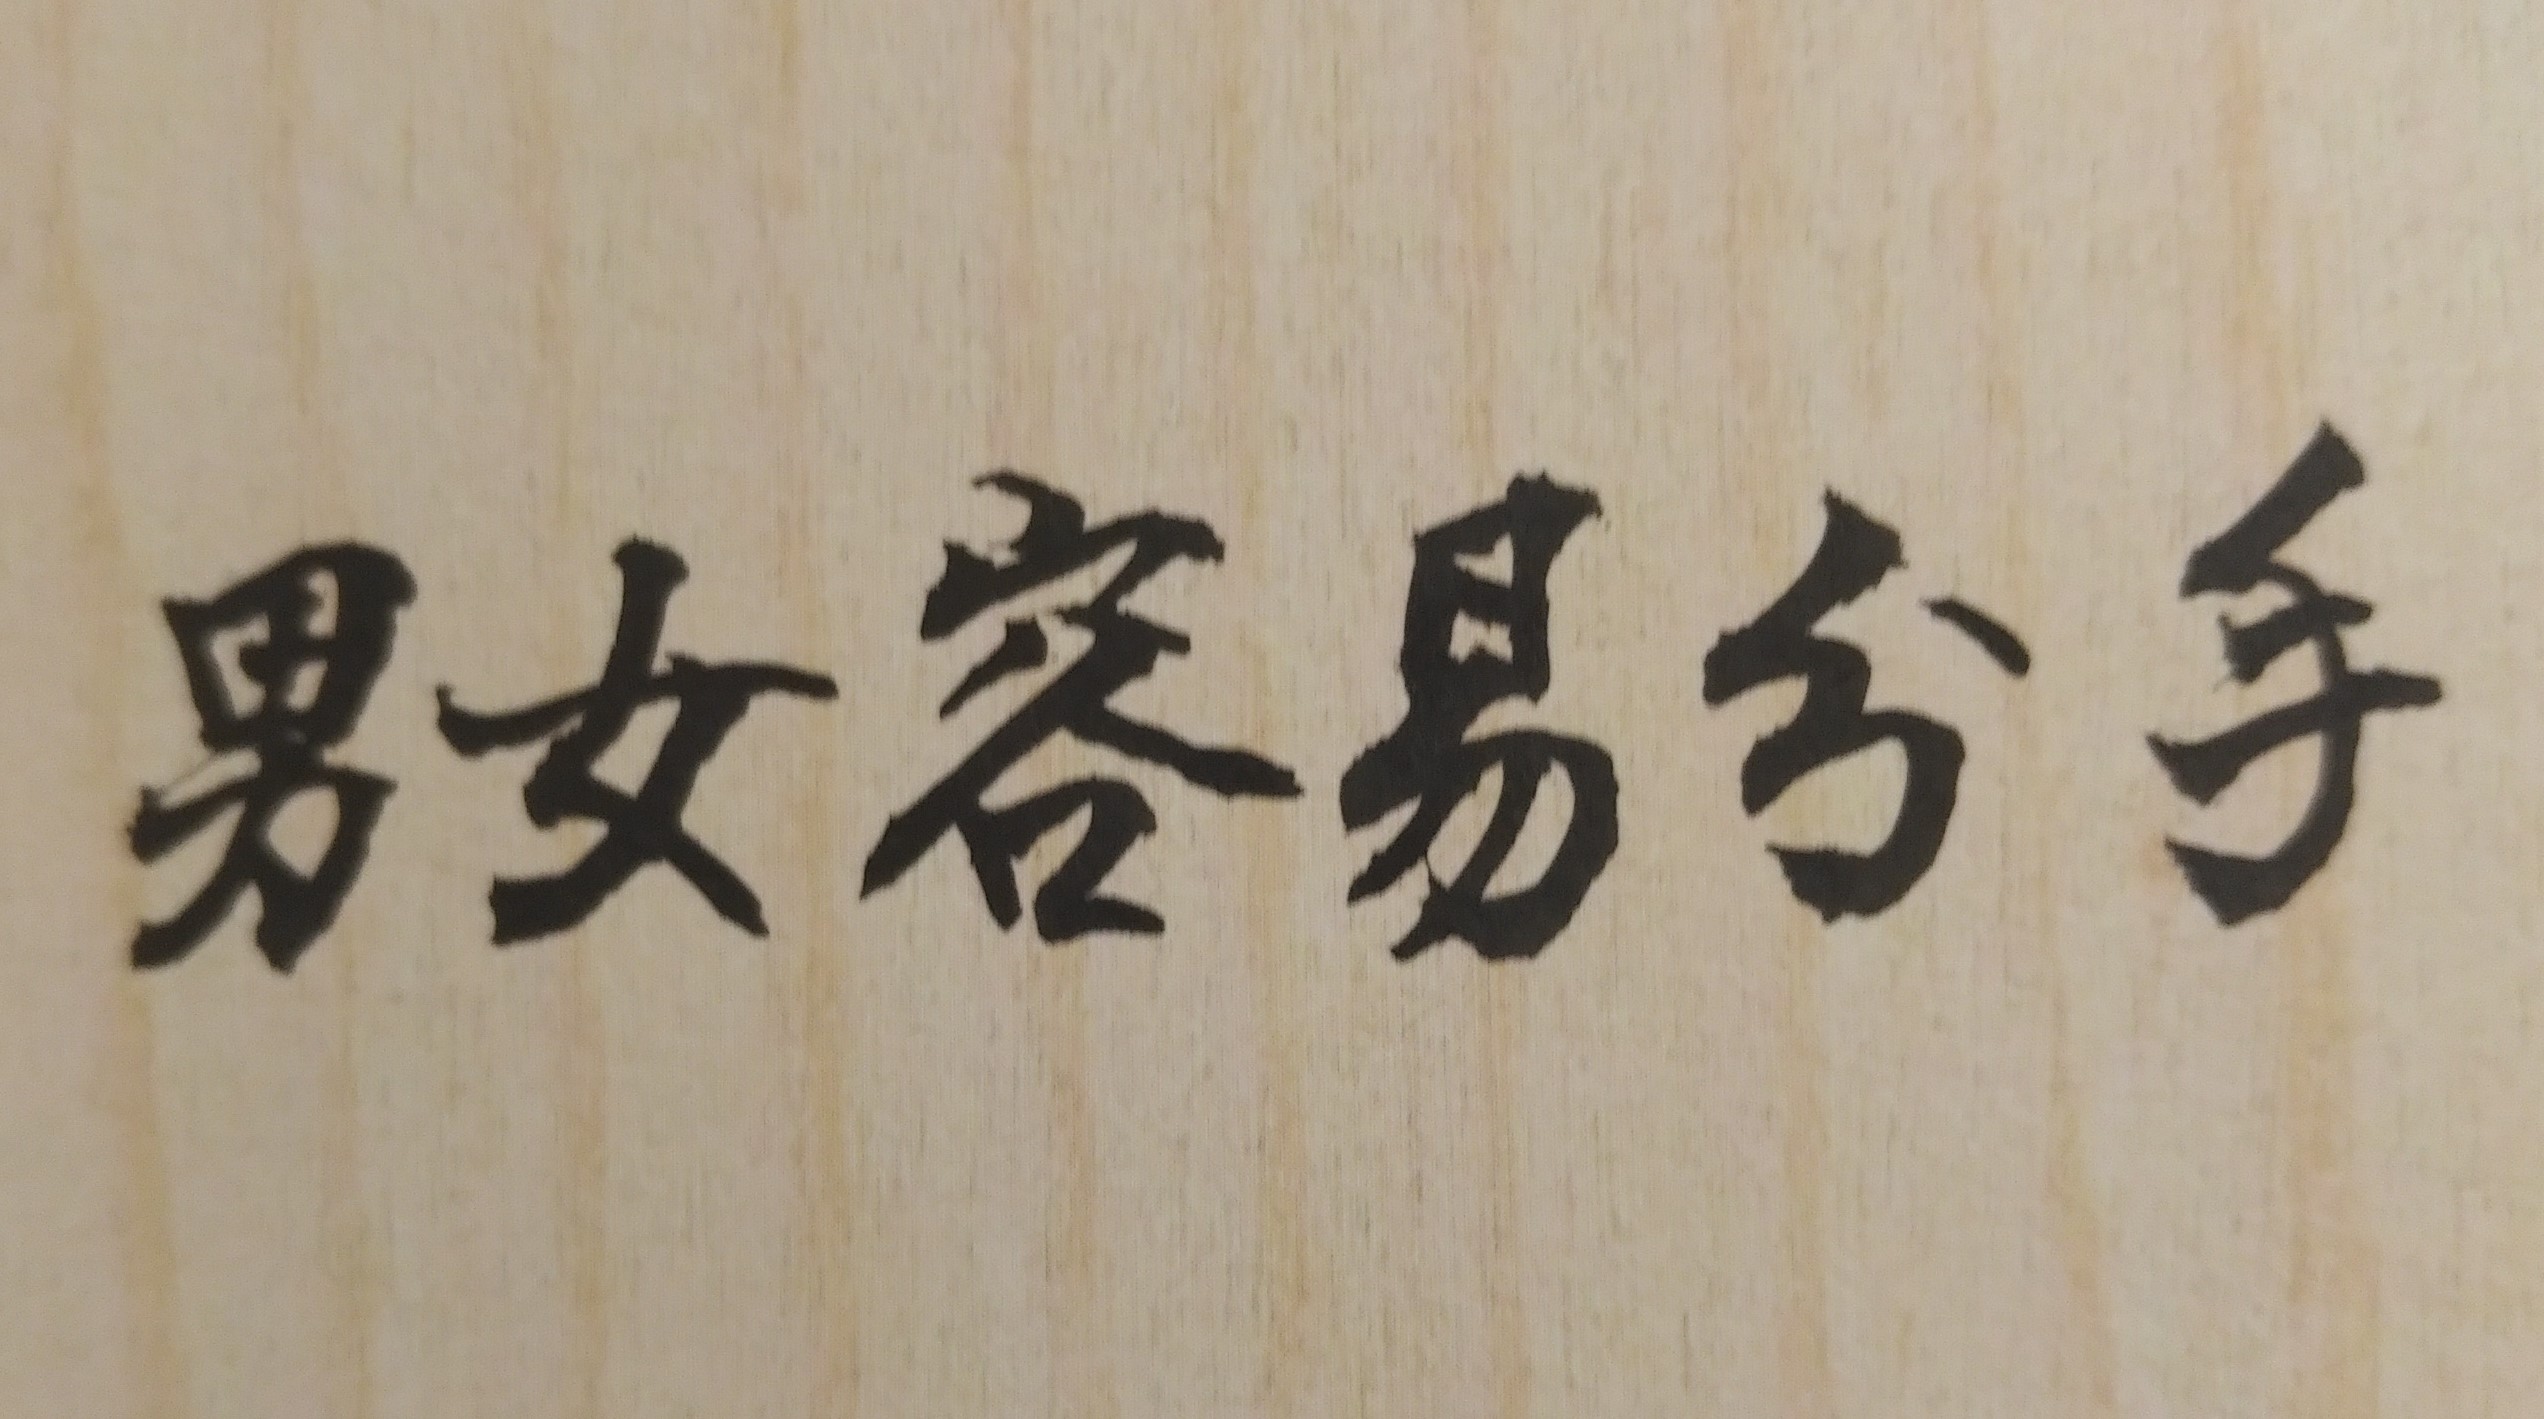 男女容易分手